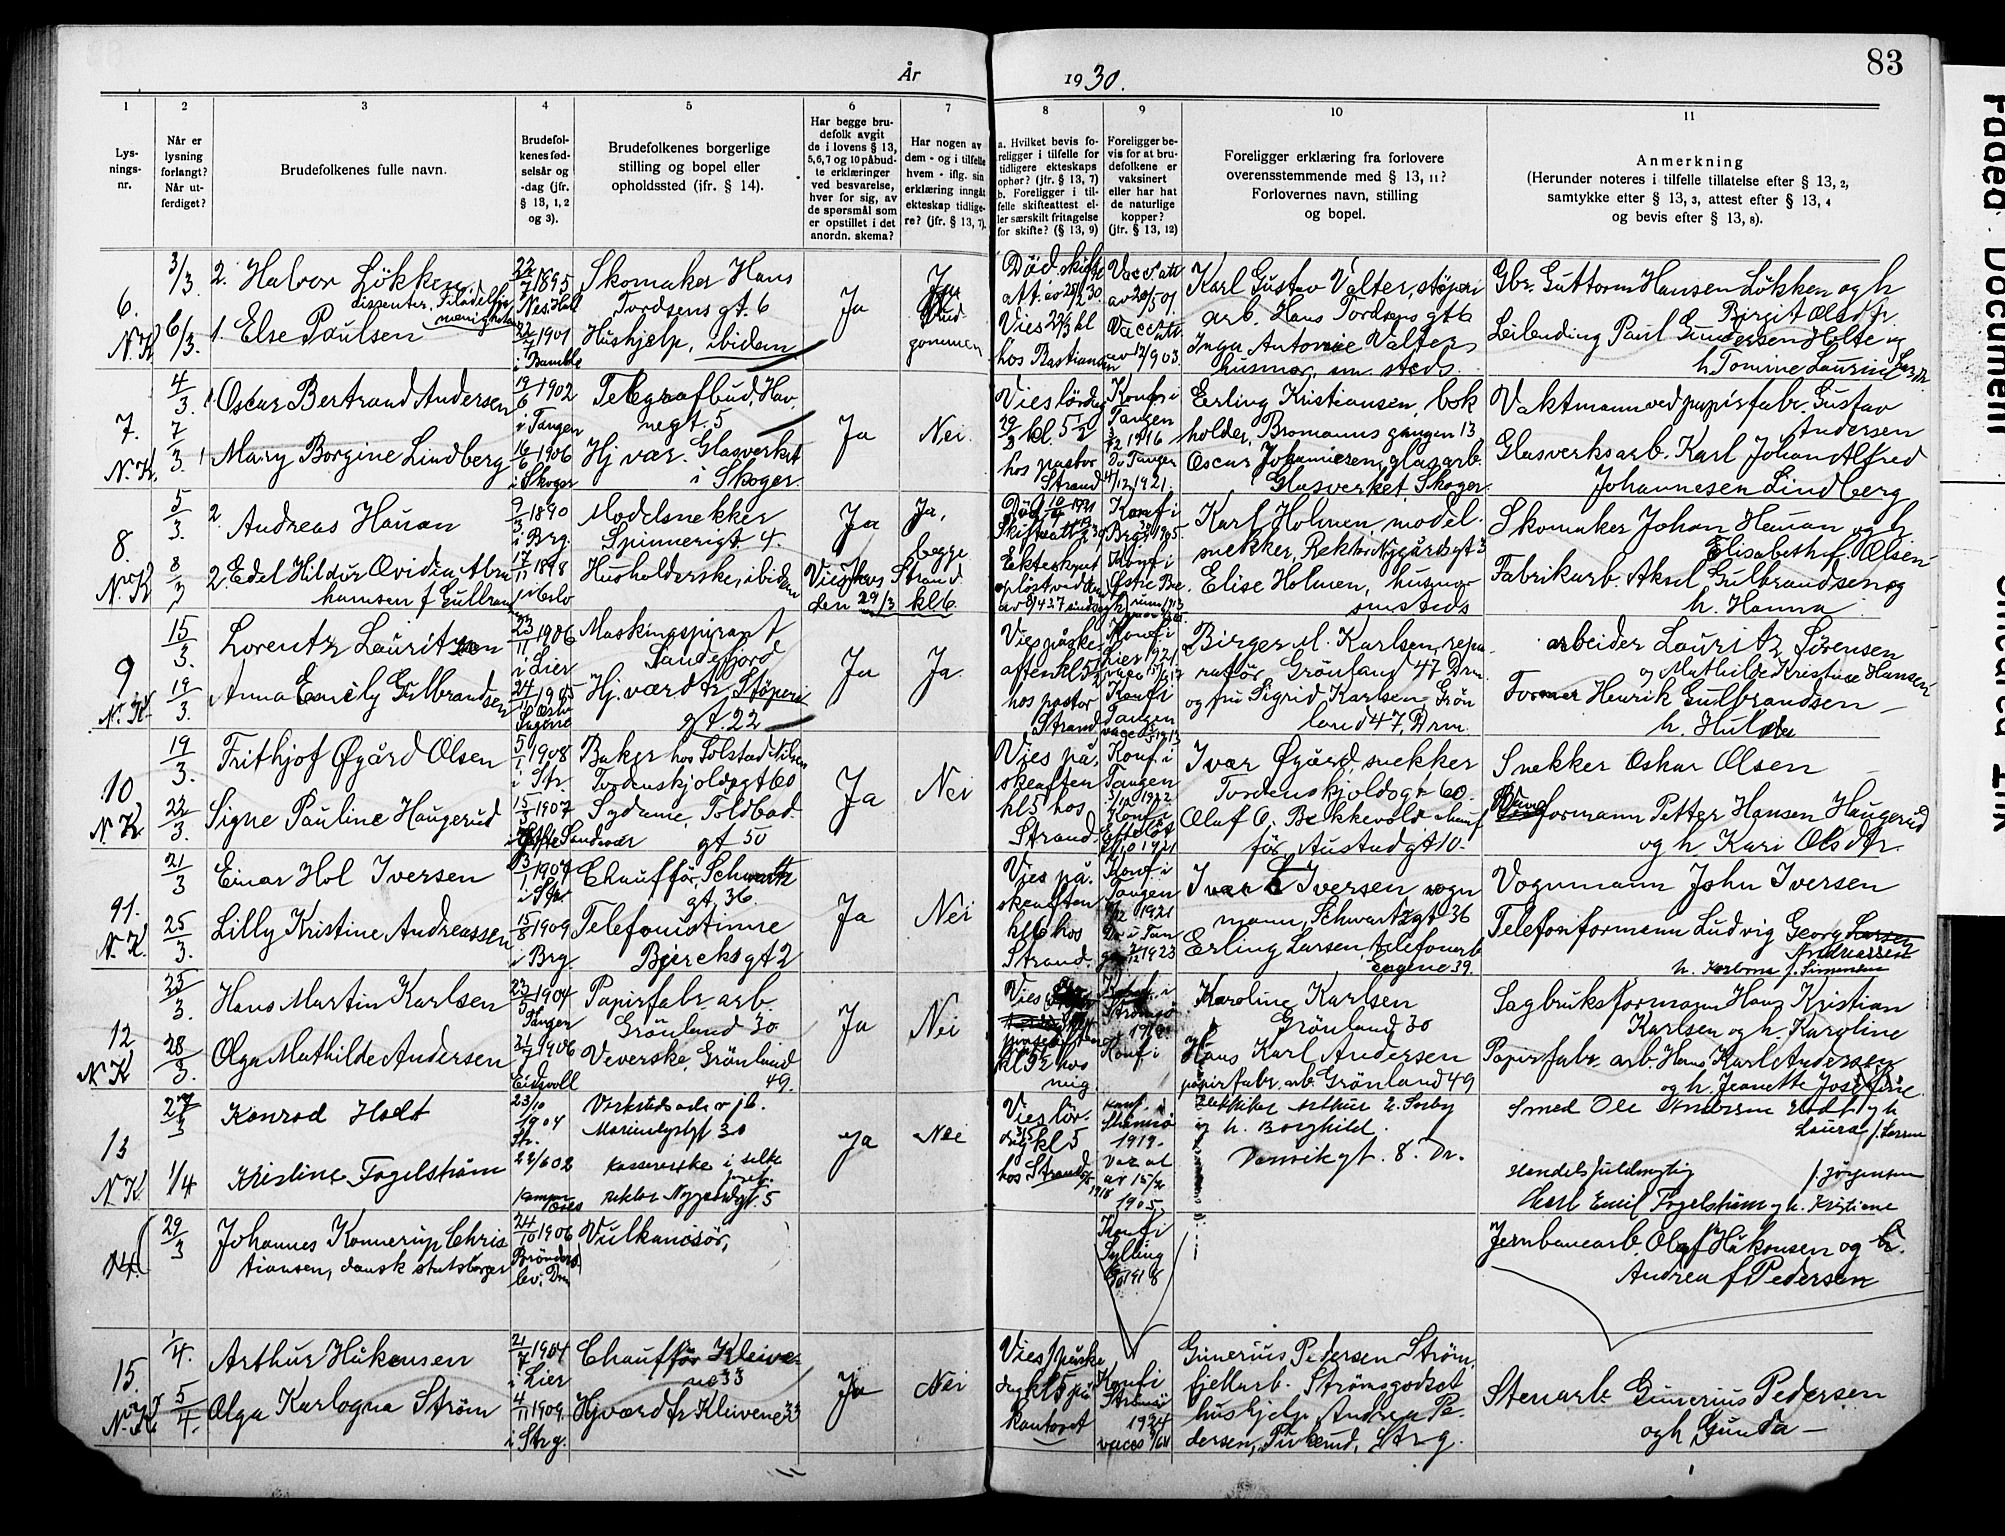 83
År 1930.
1 2 3 4 5 6 7 8 9 10 11
Lys-
nings-
nr.
Når er
lysning
forlangt?
Når ut-
ferdiget?
Brudefolkenes fulle navn.
Brudefol-
kenes fød-
selsår og
-dag (jfr.
§ 13, 1, 2
og 3).
Brudefolkenes borgerlige
stilling og bopel eller
opholdssted (jfr. § 14).
Har begge bru-
defolk avgit
de i lovens § 13,
5, 6, 7 og 10 påbud-
te erklæringer
ved besvarelse,
hver for sig, av
de spørsmål som
er opstillet i det
anordn. skema?
Har nogen av
dem - og i tilfelle
hvem - iflg. sin
erklæring inngått
ekteskap tidlige-
re? (jfr. § 13, 7).
a. Hvilket bevis fo-
religger i tilfelle for
tidligere ekteskaps
ophør? (jfr. § 13, 7)
b. Foreligger i til-
felle skifteattest el-
ler særskilt fritagelse
for skifte? (§ 13, 9)
Foreligger be-
vis for at bru-
defolkene er
vaksinert
eller har hat
de naturlige
kopper?
(jfr. § 13, 12)
Foreligger erklæring fra forlovere
overensstemmende med § 13, 11?
Forlovernes navn, stilling
og bopel.
Anmerkning
(Herunder noteres i tilfelle tillatelse efter § 13, 2,
samtykke efter § 13, 3, attest efter § 13, 4
og bevis efter § 13, 8).
6.
N.K.
3/3
6/3.
2. Halvor Lökken
dissenter, Filadelfia
menigheten
1. Else Paulsen
22/7 1895
22/7 1901
i Bamble
Skomaker Hans
Tordsens gt. 6
Hushjelp, ibidem
Ja
Ja
Brud-
gommen
Död. skifte
att. av 28/2 30
Vies 22/3 kl
hos Bastiansen
Vac. att.
av 20/5 01.
Vac. att.
av 12/9 03.
Karl Gustav Valter, støperi
arb. Hans Tordsens gt 6
Inga Antonie Valter
husmor, sm steds.
Gbr. Guttorm Hansen Lökken og h
Birgit Olsdtr.
Leilending Paul Gundersen Holte og
h. Tomine Laurine Larsdtr
7.
N.K.
4/3.
7/3.
1 Oscar Bertrand Andersen
1 Mary Borgine Lindberg
19/6 1902
i Tangen
16/6 1906
i Skoger
Telegrafbud, Hav-
negt. 5
Hj vær. Glasverket
i Skoger
Ja
Nei.
Vies lördag
29/3 kl. 5 1/2
hos pastor
Strand
Konf i
Tangen
1916
Do Tangen
4/12 1921.
Erling Kristiansen, bok
holder, Bromanns gangen 13
Oscar Johannesen, glasarb.
Glasverket, Skoger.
Vaktmann ved papirfabr. Gustav
Andersen
Glasverksarb. Karl Johan Alfred
Johannesen Lindberg
8.
N.K.
5/3.
8/3
2 Andreas Hauan
2. Edel Hildur Ovidia Abra
hamsen f Gulbran
9/3 1890
i Brg.
17/11 1898
i Oslo
Modelsnekker
Spinnerigt 4.
Husholderske, ibidem
Ja
Vies hos Strand
den 29/3 kl 6.
Ja,
begge
Ekteskapet
Konf i
Konf i
Østre
Karl Holmen, model-
snekker, Rektor Nygårds gt 3
Elise Holmen, husmor
smsteds
Skomaker Johan Hauan og h
Elisabeth f. Olsen
Fabrikarb. Aksel Gulbrandsen og
h. Hanna
9
N.K.
15/3.
19/3.
Lorentz Lauritzen
Anna Emily Gulbrandsen
23/11 1906
i Lier
24/10 1905
Oslo
Maskinaspirant
Sandefjord
Hj. værd fr, Støperi
gt 22
Ja
Ja
Vies påske
aften kl 5
hos pastor
Strand
Konf i
Lier 1921
Konf i
Tangen
Birger M. Karlsen, repa
ratør Grönland 47 Drm
og fru Sigrid Karlsen, Grön
land 47, Drm.
arbeider Lauritz Sörensen
og Mathilde Kristine Hansen
Former Henrik Gulbrandsen
h. Hulda
10
N.K.
19/3.
22/3.
Frithjof Øgård Olsen
Signe Pauline Haugerud
5/1 1908
i Str.
15/3 1907
Sandsvær
Baker hos Solstad Nilsen
Tordenskjoldsgt 60
Sydame, Toldbod-
gt 50
Ja
Nei
Vies på-
skeaften
kl 5 hos
Strand
Konf i
Tangen
1922
Konf i
Efteløt
1921
Ivar Øgård, snekker
Tordenskjoldsgt 60.
Olaf O. Bekkevold chauf
för Austadgt 10.
Snekker Oskar Olsen
formann Petter Hansen Haugerud
og h Kari Olsdtr.
11.
N.K.
21/3
25/3.
Einar Hol Iversen
Lilly Kristine Andreassen
1907
i Str.
15/8 1909
i Brg.
Chauffør, Schwartz
gt. 36.
Telefonistinne
Bjercks gt 2
Ja
Nei
Vies på-
skeaften
kl 6 hos
Strand.
Konf i
Tangen
1921
Do i Tan
gen 1923
Ivar Iversen vogn
mann, Schwartz gt 36
Erling Larsen, telefonarb
Engene 39.
Vognmann John Iversen
Telefonformann Ludvig Georg Larsen
Andreassen
h. Karolina f. Simensen
12
N K
25/3.
28/3.
Hans Martin Karlsen
Olga Mathilde Andersen
23/5 1904
Tangen
21/7 1906
Eidsvoll
Papirfabr. arb.
Grönland 30
Veverske, Grönland
49.
Ja
Nei
Vies
kl 5 1/2 hos
mig.
Konf. i
Strömsö
Konf i
Karoline Karlsen
Grönland 30
Hans Karl Andersen
papirfabr. arb. Grönland 49
Sagbruksformann Hans Kristian
Karlsen og h. Karoline
Papirfabr. arb. Hans Karl Andersen
og h. Jeanette Josefine
13
N K
27/3
1/4
Konrad Hodt
Kristine Fogelstrøm
23/10
1904
Str.
22/6 02
Verkstedsarb v jb.
Marienlystgt 30
Kassererske i
rektor Nygaardsgt. 5
Ja
Nei
Vies lör-
dag kl 5
hos Strand
Konf. i
Strømsø
1919.
Vac at
av 15/2
1905,
Arthur E. Sørby
og h. Borghild.
Danvikgt. 8. Dr.
Smed Ole Andersen Hodt og h
Laura f. Larsen
Handelsfuldmægtig
f. Jørgensen
Karl Emil Fogelstrøm og h. Kristiane
14.
29/3
Johannes Konnerup Chris
tiansen, dansk statsborger
24/10 1906
Brönders
lev, Dm
Vulkanisör,
Konf i
Sylling
1918
Jernbanearb. Olaf Håkonsen og h.
Andrea f Pedersen
15.
N.K.
1/4.
5/4.
Arthur Håkonsen
Olga Karlogna Strøm
21/7 1904
i Lier
4/11 1909
i Strg.
Chauffør Kleive-
ne 33
Hj værd fr Kleivene 33
Ja
Nei
Vies påske
dag kl 5 på
kontoret
Konf i
Strömsö
1924
Gunerius Pedersen Strøm,
fjellarb. Strømsgodset
hushjelp Andrea Pe-
dersen, Strg.
Stenarb. Gunerius Pedersen
og h Gunda
Faded Document